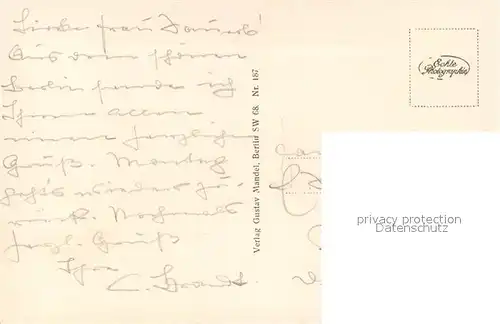 Liebe Frau Bauers!
Aus dem schönen
Berlin sende ich
Ihnen allen
einen herzlichen
Gruß. Montag
geht's wieder zu-
rück. Nochmals
herzl. Grüße
Ihre
C. Brandt.
Verlag Gustav Mandel, Berlin SW 68. Nr. 187
Echte
Photographie
privacy protection
Datenschutz